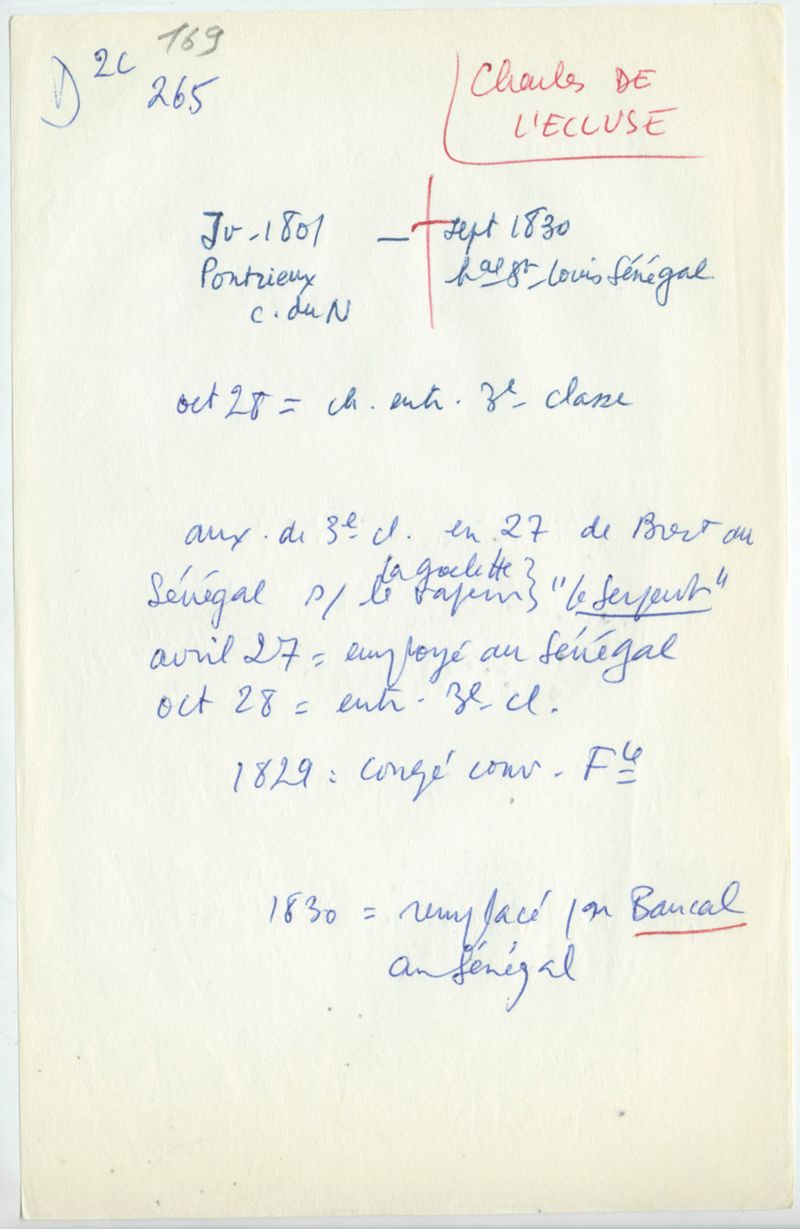 169
D 2C
265
Charles DE
L'ECLUSE
Jv-1801 — † sept 1830
Pontrieux hal St-Louis Sénégal
C. du N
oct 28 = ch. entr. 3e classe
aux. de 3e cl. en 27 de Brest au
la goelette
Sénégal s/ le "le Serpent"
avril 27 = employé au Sénégal
oct 28 = entr. 3e cl.
1829 : congé conv. Fce
1830 = remplacé par Bancal
au Sénégal